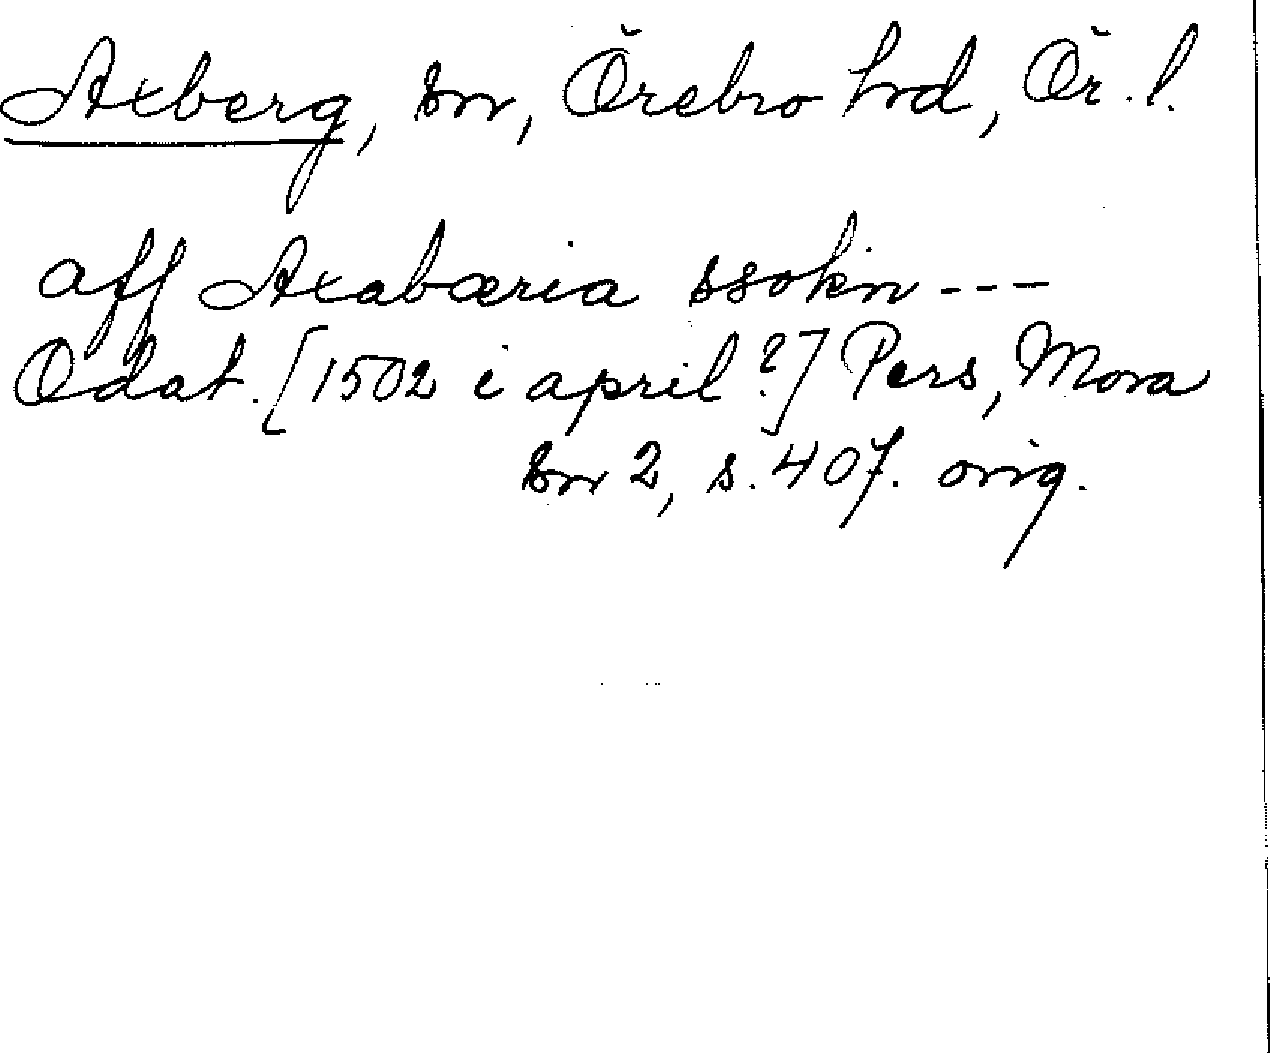 Axberg, sn, Örebro hd, Ör. l.
aff Axabæria ssokn ---
Odat. [1502 i april ?] Pers, Mora
sn 2, s. 407. orig.